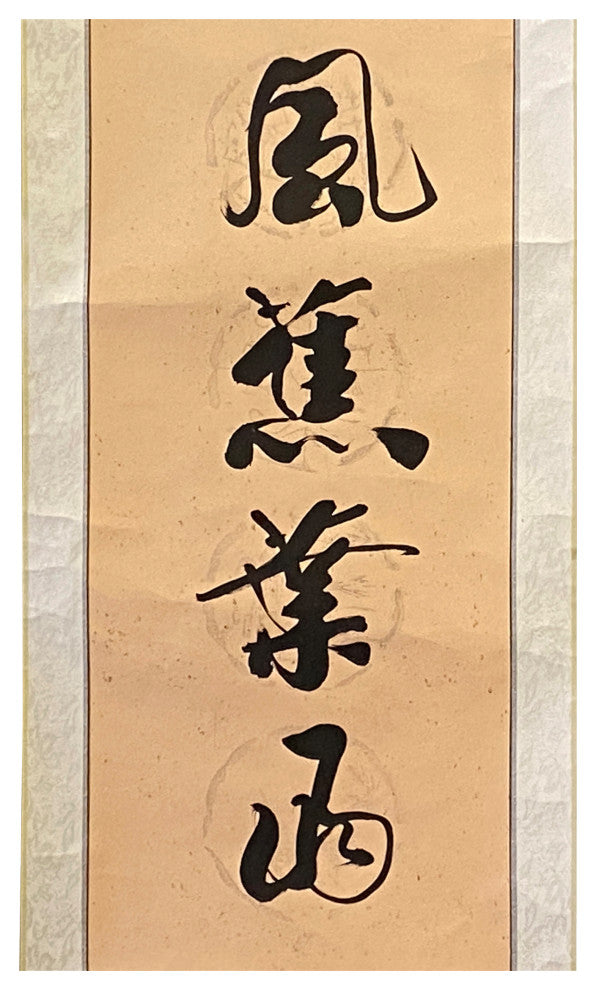 風蕉葉雨